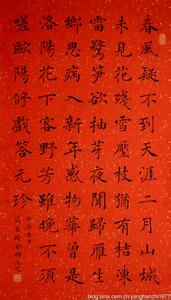 春風疑不到天涯二月山城
未見花殘雪壓枝猶有桔凍
雷驚筍欲抽芽夜聞歸雁生
鄉思病入新年感物華曾是
洛陽花下客野芳雖晚不須
嗟歐陽修戲答元珍
blog.sina.com.cn/yanghanchi1977